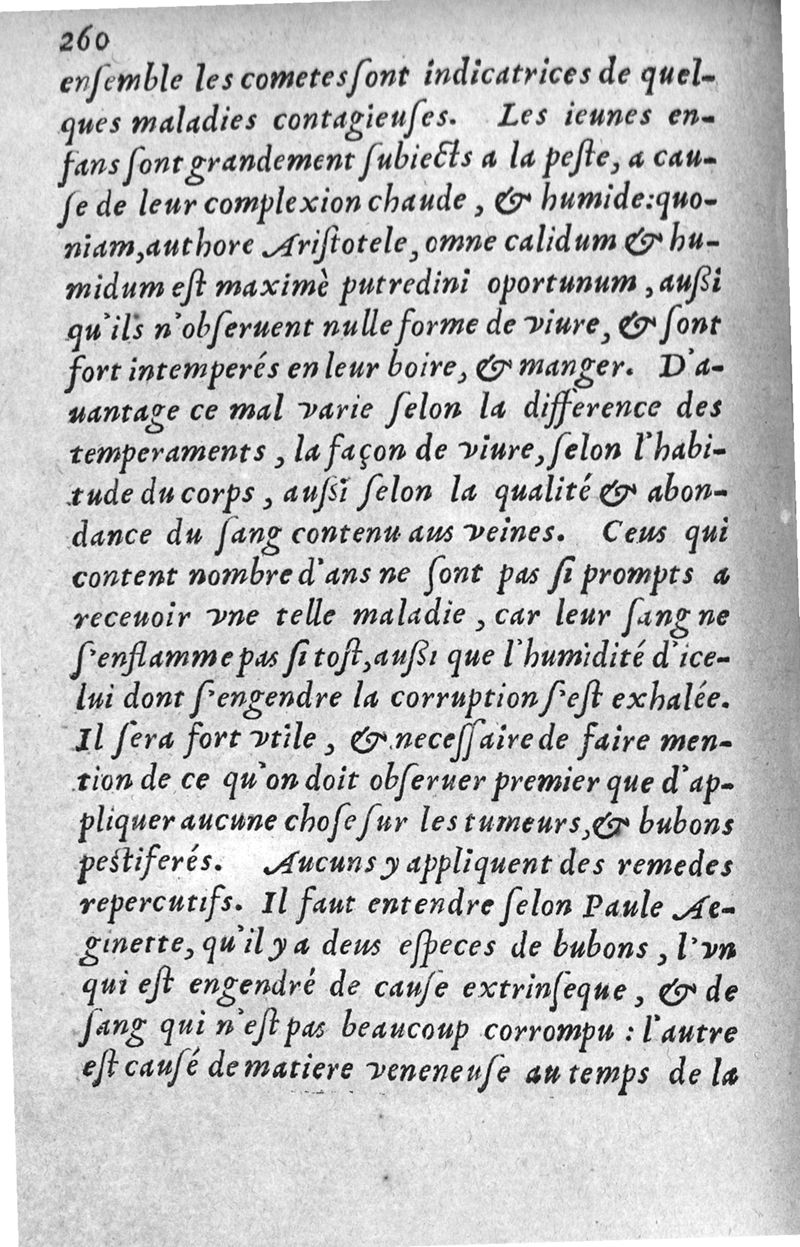 260
enſemble les cometes ſont indicatrices de quel-
ques maladies contagieuſes. Les ieunes en-
fans ſont grandement ſubiects a la peſte, a cau-
ſe de leur complexion chaude, & humide: quo-
niam, authore Ariſtotele, omne calidum & hu-
midum eſt maximè putredini oportunum, außi
qu'ils n'obſeruent nulle forme de viure, & ſont
fort intemperés en leur boire, & manger. D'a-
uantage ce mal varie ſelon la difference des
temperaments, la façon de viure, ſelon l'habi-
tude du corps, außi ſelon la qualité & abon-
dance du ſang contenu aus veines. Ceus qui
content nombre d'ans ne ſont pas ſi prompts a
receuoir vne telle maladie, car leur ſang ne
ſ'enflamme pas ſi toſt, außi que l'humidité d'ice-
lui dont ſ'engendre la corruption ſ'eſt exhalée.
Il ſera fort vtile, & neceſſaire de faire men-
tion de ce qu'on doit obſeruer premier que d'ap-
pliquer aucune choſe ſur les tumeurs, & bubons
peſtiferés. Aucuns y appliquent des remedes
repercutifs. Il faut entendre ſelon Paule Ae-
ginette, qu'il y a deus eſpeces de bubons, l'vn
qui eſt engendré de cauſe extrinſeque, & de
ſang qui n'eſt pas beaucoup corrompu : l'autre
eſt cauſé de matiere veneneuſe au temps de la